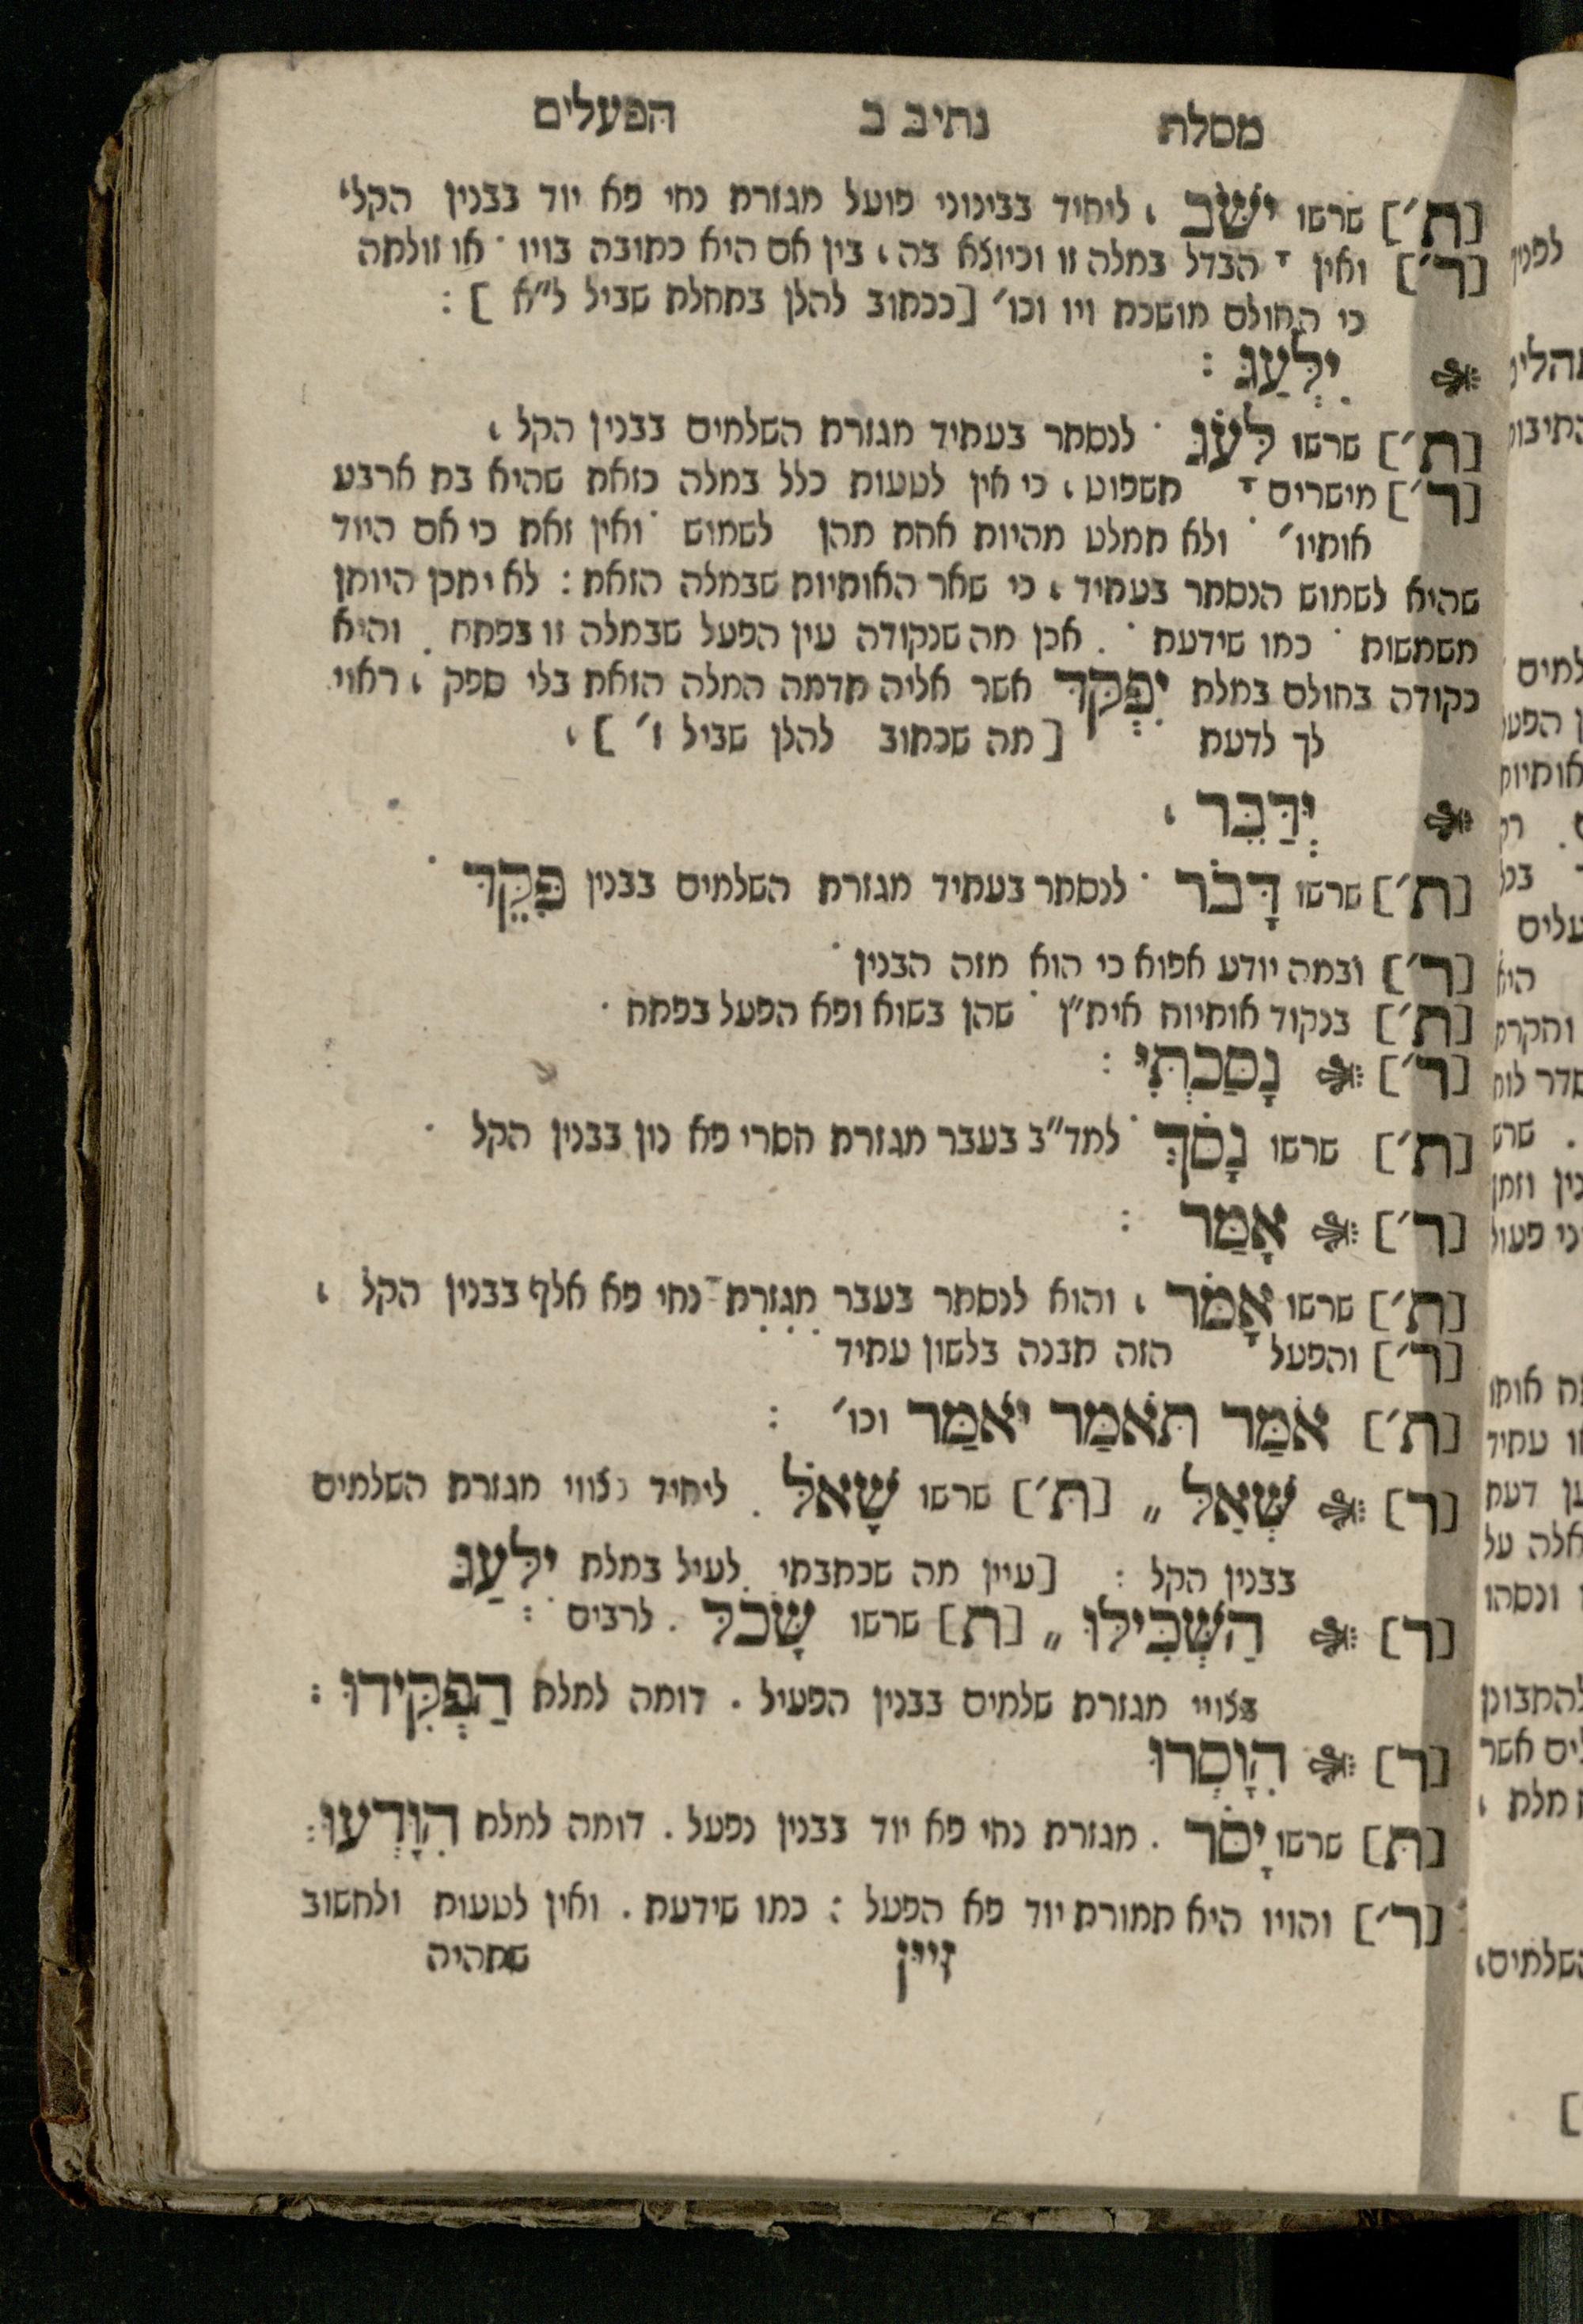 מסלת נתיב ב הפעלים
[ת׳] שרשו יָשֹׁב , ליחיד בבינוני פועל מגזרת נחי פא יוד בבנין הקל ,
[ר׳] ואין הבדל במלה זו וכיוצא בה , בין אם היא כתובה בויו ׳ או זולתה
כי החולם מושכת ויו וכו׳ [ככתוב להלן בתחלת שביל ל״א ] :
יִלְעַג :
[ת׳] שרשו לָעֹג ׳ לנסתר בעתיד מגזרת השלמים בבנין הקל ,
[ר׳] מישרים תשפוט , כי אין לטעות כלל במלה כזאת שהיא בת ארבע
אותיו׳ ׳ ולא תמלט מהיות אחת מהן לשמוש ׳ ואין זאת כי אם היוד
שהיא לשמוש הנסתר בעתיד , כי שאר האותיות שבמלה הזאת : לא יתכן היותן
משמשות ׳ כמו שידעת ׳ . אכן מה שנקודה עין הפעל שבמלה זו בפתח . והיא
נקודה בחולם במלת יִפְקֹד אשר אליה תדמה המלה הזאת בלי ספק , ראוי
לך לדעת [מה שכתוב להלן שביל ו׳ ] ,
יְדַבֵּר ,
[ת׳] שרשו דָּבֹר ׳ לנסתר בעתיד מגזרת השלמים בבנין פִּקֵּד ׳
[ר׳] ובמה יודע אפוא כי הוא מזה הבנין ׳
[ת׳] בנקוד אותיות אית״ן ׳ שהן בשוא ופא הפעל בפתח ׳
[ר׳] נָסַכְתִּי :
[ת׳] שרשו נָסֹךְ ׳ למד״ב בעבר מגזרת חסרי פא נון בבנין הקל ׳
[ר׳] אָמַר :
[ת׳] שרשו אָמֹר , והוא לנסתר בעבר מגזרת נחי פא אלף בבנין הקל ,
[ר׳] והפעל הזה תבנה בלשון עתיד
[ת׳] אֹמַר תֹּאמַר יֹאמַר וכו׳ :
[ר] שְׁאַל ,, [ת׳] שרשו שָׁאֹל . ליחיד צווי מגזרת השלמים
בבנין הקל : [עיין מה שכתבתי לעיל במלת יִלְעַג
[ר] הַשְׂכִּילוּ ,, [ת] שרשו שָׂכֹל . לרבים :
בצווי מגזרת שלמים בבנין הפעיל . דומה למלת הַפְקִידוּ :
[ר] הִוָּסְרוּ
[ת] שרשו יָסֹר . מגזרת נחי פא יוד בבנין נפעל . דומה למלת הִוָּדְעוּ :
[ר׳] והויו היא תמורת יוד פא הפעל : כמו שידעת . ואין לטעות ולחשוב
זיין שתהיה